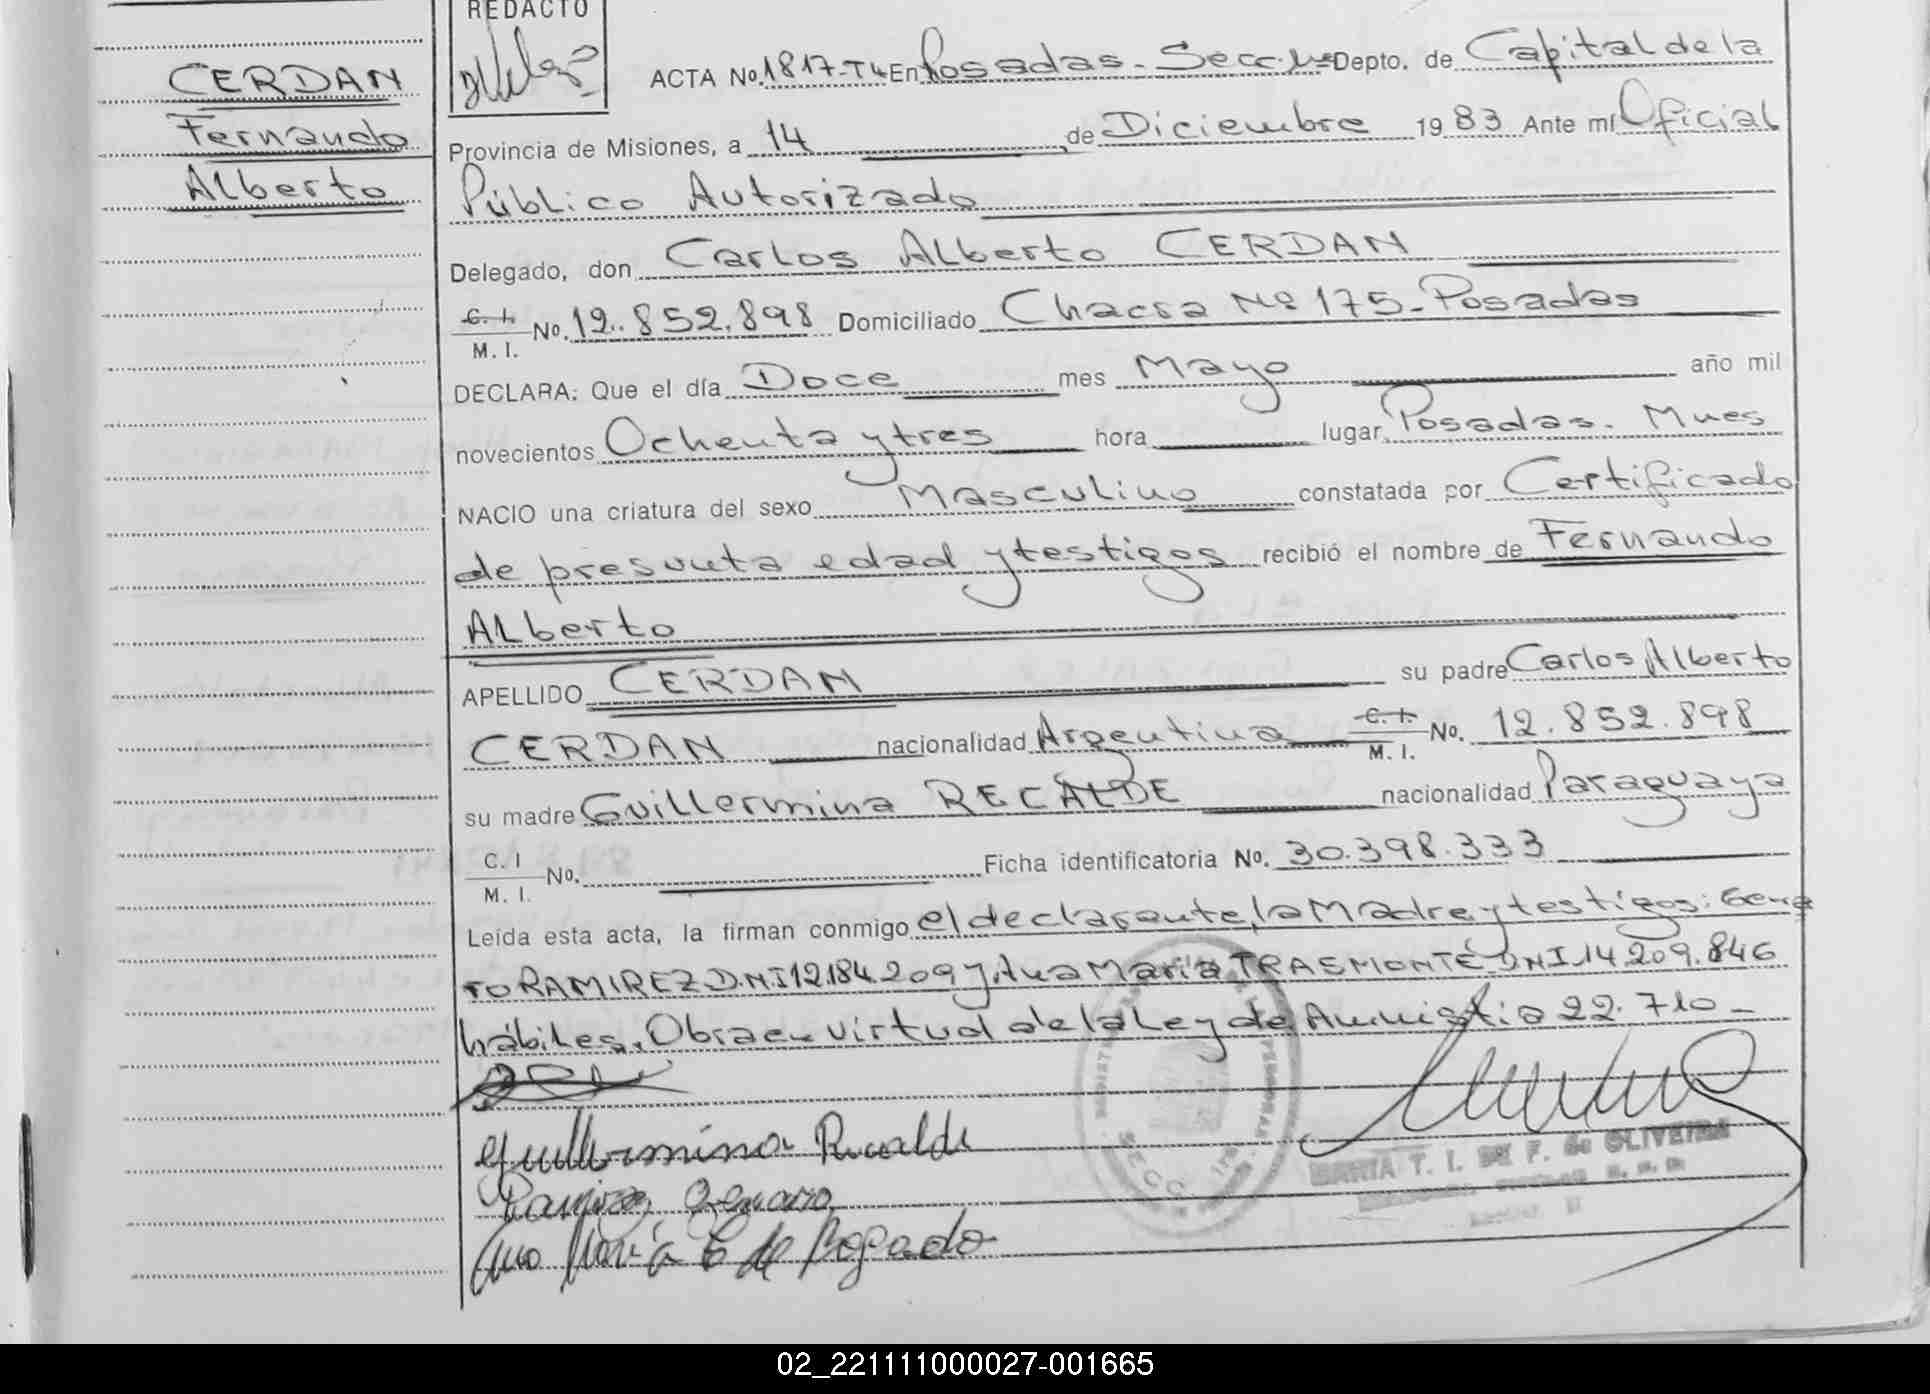 REDACTO
CERDAN
Fernando
Alberto
ACTA No. 1817-T4 En Posadas - Secc. 1ª Depto. de Capital de la
Provincia de Misiones, a 14 de Diciembre 1983 Ante mí Oficial
Público Autorizado
Delegado, don Carlos Alberto CERDAN
C. I. / M. I. No. 12.852.898 Domiciliado Chacra Nº 175 - Posadas
DECLARA: Que el día Doce mes Mayo año mil
novecientos Ochenta y tres hora lugar Posadas. Mnes
NACIO una criatura del sexo Masculino constatada por Certificado
de presunta edad y testigos recibió el nombre de Fernando
Alberto
APELLIDO CERDAN su padre Carlos Alberto
CERDAN nacionalidad Argentina C. I. / M. I. No. 12.852.898
su madre Guillermina RECALDE nacionalidad Paraguaya
C. I / M. I. No. Ficha identificatoria No. 30.398.333
Leída esta acta, la firman conmigo el declarante, la Madre y testigos: Gena
ro RAMIREZ D.N.I 12.184.209 y Ana María TRASMONTE DNI 14.209.846
hábiles. Obra en virtud de la Ley de Amnistia 22.710 -
Guillermina Recalde
Ramirez Genaro
Ana María T de Bogado
MARIA T. I. DE F. de OLIVEIRA
02_221111000027-001665